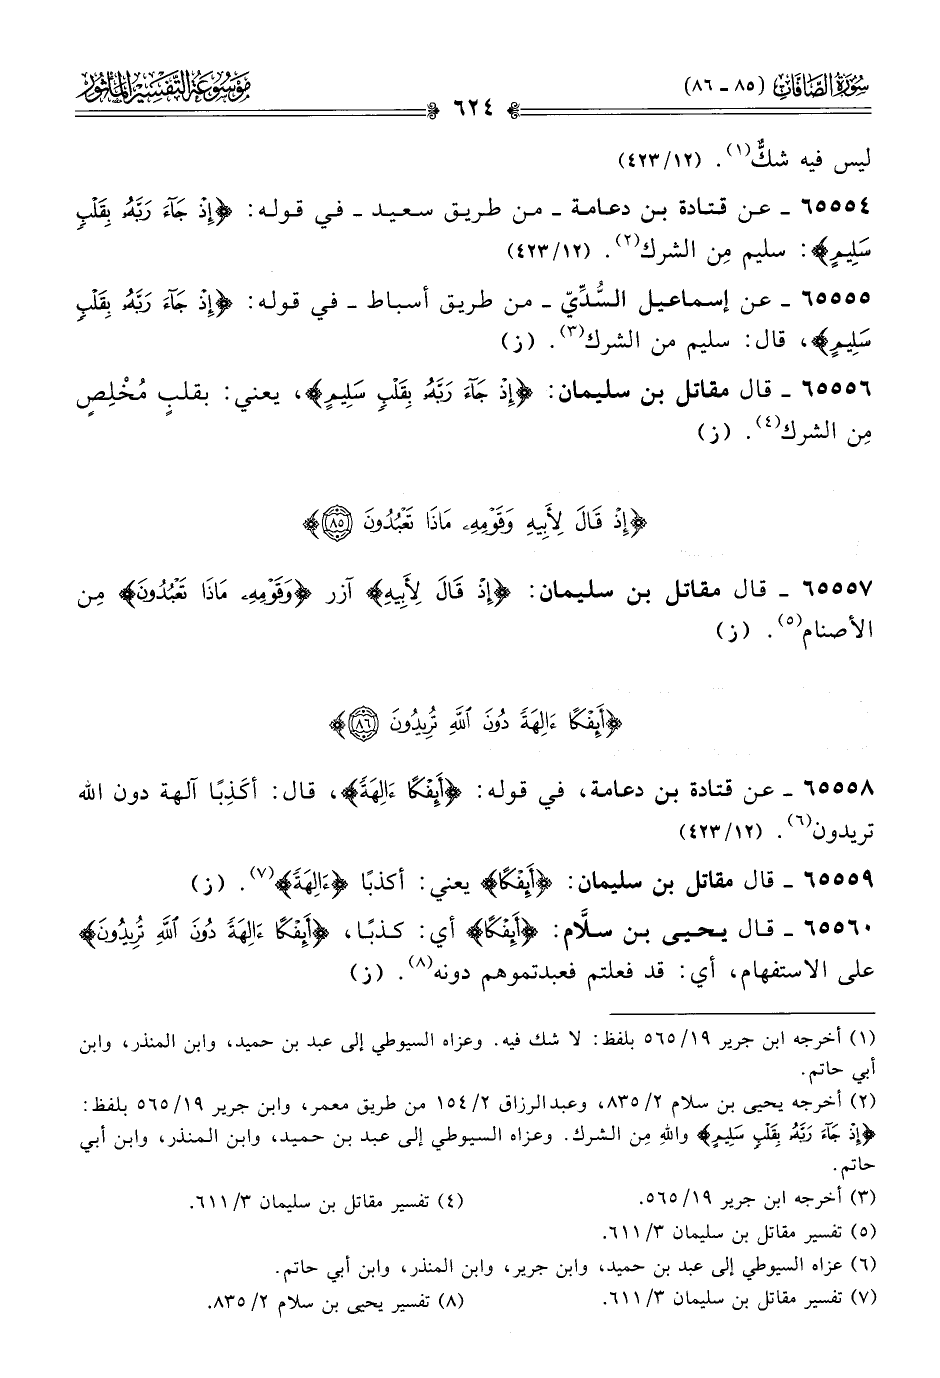 سُورَةُ الصَّافَّاتِ (٨٥ - ٨٦)
٦٢٤
مَوْسُوعَةُ التَّفْسِيرِ المَأْثُورِ
ليس فيه شكٌّ(١). (٤٢٣/١٢)
٦٥٥٥٤ - عن قتادة بن دعامة - من طريق سعيد - في قوله: ﴿إِذْ جَآءَ رَبَّهُۥ بِقَلْبٍ
سَلِيمٍ﴾: سليم مِن الشرك(٢). (٤٢٣/١٢)
٦٥٥٥٥ - عن إسماعيل السُّدِّيّ - من طريق أسباط - في قوله: ﴿إِذْ جَآءَ رَبَّهُۥ بِقَلْبٍ
سَلِيمٍ﴾، قال: سليم من الشرك(٣). (ز)
٦٥٥٥٦ - قال مقاتل بن سليمان: ﴿إِذْ جَآءَ رَبَّهُۥ بِقَلْبٍ سَلِيمٍ﴾، يعني: بقلبٍ مُخْلِصٍ
مِن الشرك(٤). (ز)
﴿إِذْ قَالَ لِأَبِيهِ وَقَوْمِهِۦ مَاذَا تَعْبُدُونَ ٨٥﴾
٦٥٥٥٧ - قال مقاتل بن سليمان: ﴿إِذْ قَالَ لِأَبِيهِ﴾ آزر ﴿وَقَوْمِهِۦ مَاذَا تَعْبُدُونَ﴾ مِن
الأصنام(٥). (ز)
﴿أَئِفْكًا ءَالِهَةً دُونَ ٱللَّهِ تُرِيدُونَ ٨٦﴾
٦٥٥٥٨ - عن قتادة بن دعامة، في قوله: ﴿أَئِفْكًا ءَالِهَةً﴾، قال: أكَذِبًا آلهة دون الله
تريدون(٦). (٤٢٣/١٢)
٦٥٥٥٩ - قال مقاتل بن سليمان: ﴿أَئِفْكًا﴾ يعني: أكذبًا ﴿ءَالِهَةً﴾(٧). (ز)
٦٥٥٦٠ - قال يحيى بن سلَّام: ﴿أَئِفْكًا﴾ أي: كذبًا، ﴿أَئِفْكًا ءَالِهَةً دُونَ ٱللَّهِ تُرِيدُونَ﴾
على الاستفهام، أي: قد فعلتم فعبدتموهم دونه(٨). (ز)
(١) أخرجه ابن جرير ١٩/ ٥٦٥ بلفظ: لا شك فيه. وعزاه السيوطي إلى عبد بن حميد، وابن المنذر، وابن
أبي حاتم.
(٢) أخرجه يحيى بن سلام ٢/ ٨٣٥، وعبدالرزاق ٢/ ١٥٤ من طريق معمر، وابن جرير ١٩/ ٥٦٥ بلفظ:
﴿إِذْ جَآءَ رَبَّهُۥ بِقَلْبٍ سَلِيمٍ﴾ واللهِ مِن الشرك. وعزاه السيوطي إلى عبد بن حميد، وابن المنذر، وابن أبي
حاتم.
(٣) أخرجه ابن جرير ١٩/ ٥٦٥.
(٤) تفسير مقاتل بن سليمان ٣/ ٦١١.
(٥) تفسير مقاتل بن سليمان ٣/ ٦١١.
(٦) عزاه السيوطي إلى عبد بن حميد، وابن جرير، وابن المنذر، وابن أبي حاتم.
(٧) تفسير مقاتل بن سليمان ٣/ ٦١١.
(٨) تفسير يحيى بن سلام ٢/ ٨٣٥.